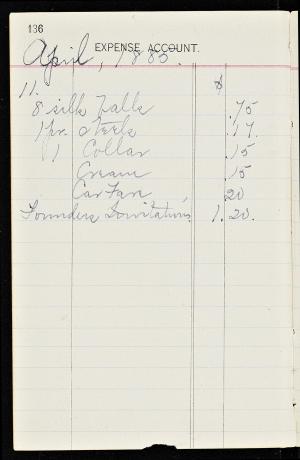 136
EXPENSE ACCOUNT.
April, 1885.
11. $
8 silk balls .75
1 pr. steels .17.
1 Collar .15
Cream .15
Car Fare .20
Founders Invitations, 1.20.